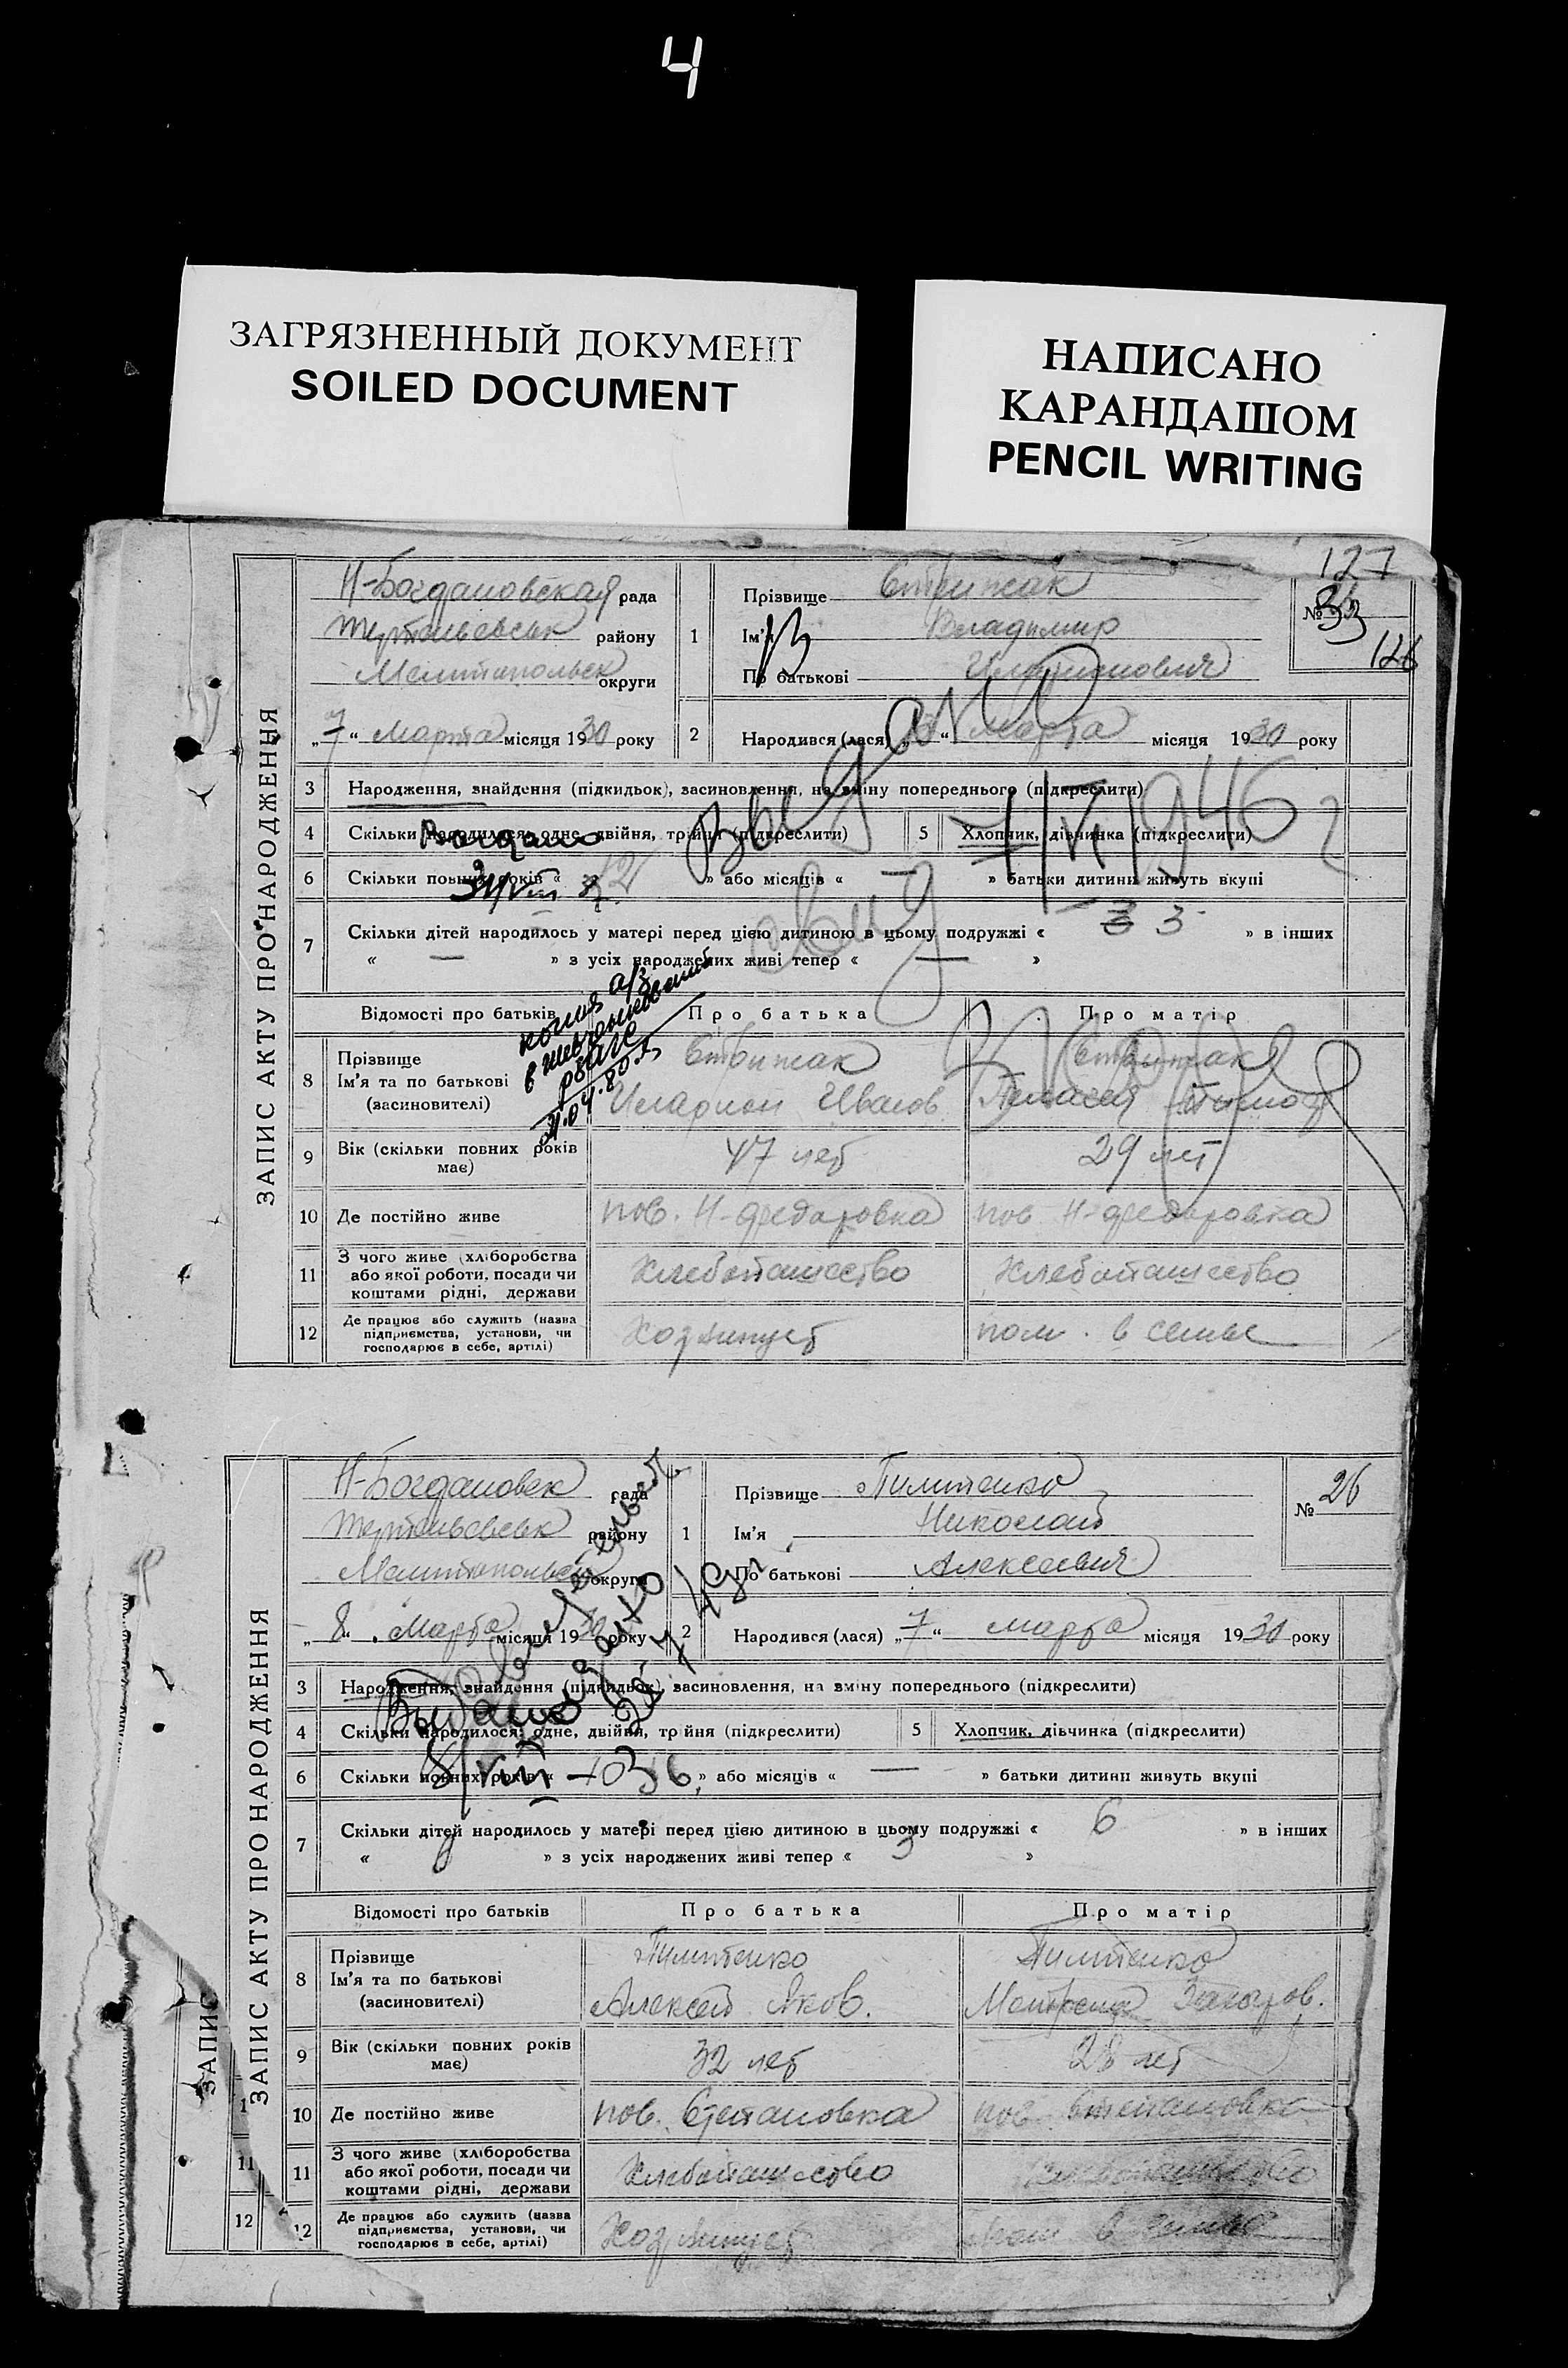 4
ЗАГРЯЗНЕННЫЙ ДОКУМЕНТ
SOILED DOCUMENT
НАПИСАНО
КАРАНДАШОМ
PENCIL WRITING
127
126
№ 33
ЗАПИС АКТУ ПРО НАРОДЖЕННЯ
Н-Богдановская рада
району
Мелитопольск округи
„7“ марта місяця 1930 року
1
Прізвище Стрижак
Ім'я Владимир
По батькові Иларионович
2 Народився (лася) „ “ марта місяця 1930 року
3 Народження, знайдення (підкидьок), засиновлення, на зміну попереднього (підкреслити)
4 Скільки народилося: одне, двійня, трійня (підкреслити)
5 Хлопчик, дівчинка (підкреслити)
6 Скільки повних років « » або місяців « — » батьки дитини живуть вкупі
7 Скільки дітей народилось у матері перед цією дитиною в цьому подружжі « 3 » в інших
« — » з усіх народжених живі тепер « — »
Выдано
7/VI 1946
копия а/з
Відомості про батьків Про батька Про матір
8 Прізвище
Ім'я та по батькові
(засиновителі)
Стрижак
Иларион Иванов
Стрижак
9 Вік (скільки повних років має) 47 лет 29 лет
10 Де постійно живе пос. Н-Федоровка пос. Н-Федоровка
11 З чого живе (хліборобства
або якої роботи, посади чи
коштами рідні, держави
Хлебопашество Хлебопашество
12 Де працює або служить (назва
підприємства, установи, чи
господарює в себе, артілі)
пом. в семье
ЗАПИС АКТУ ПРО НАРОДЖЕННЯ
Н-Богдановск рада
району
Мелитопольск округи
„8“ Марта місяця 1930 року
1
Прізвище Пилипенко
Ім'я Николай
По батькові Алексеевич
№ 26
2 Народився (лася) „7“ марта місяця 1930 року
3 Народження, знайдення (підкидьок), засиновлення, на зміну попереднього (підкреслити)
4 Скільки народилося: одне, двійня, трійня (підкреслити)
5 Хлопчик, дівчинка (підкреслити)
6 Скільки повних років « » або місяців « — » батьки дитини живуть вкупі
7 Скільки дітей народилось у матері перед цією дитиною в цьому подружжі « 6 » в інших
« » з усіх народжених живі тепер « 3 »
Відомості про батьків Про батька Про матір
8 Прізвище
Ім'я та по батькові
(засиновителі)
Пилипенко
Алексей Яков.
Пилипенко
Матрена Захаров.
9 Вік (скільки повних років має) 32 лет 28 лет
10 Де постійно живе пос. Степановка пос. Степановка
11 З чого живе (хліборобства
або якої роботи, посади чи
коштами рідні, держави
Хлебопашество
12 Де працює або служить (назва
підприємства, установи, чи
господарює в себе, артілі)
пом в семье
ЗАПИС
11
12